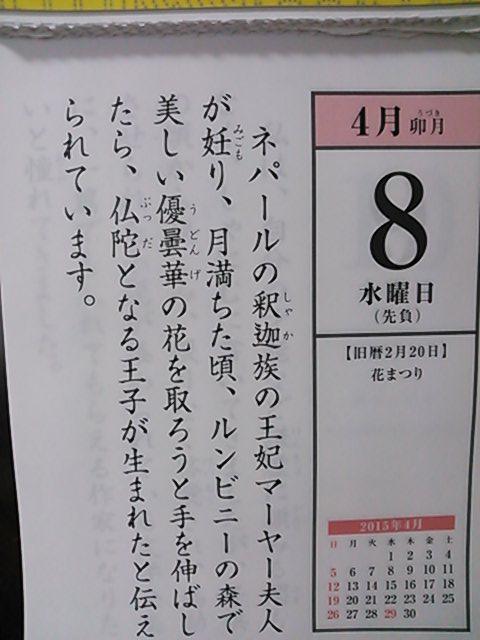 4月 卯月
うづき
8
水曜日
(先負)
【旧暦2月20日】
花まつり
2015年4月
日 月 火 水 木 金 土
1 2 3 4
5 6 7 8 9 10 11
12 13 14 15 16 17 18
19 20 21 22 23 24 25
26 27 28 29 30
ネパールの釈迦族の王妃マーヤー夫人
しゃか
が妊り、月満ちた頃、ルンビニーの森で
みごも
美しい優曇華の花を取ろうと手を伸ばし
うどんげ
たら、仏陀となる王子が生まれたと伝え
ぶっだ
られています。